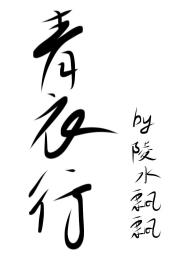 青衣行
by陵水飘飘